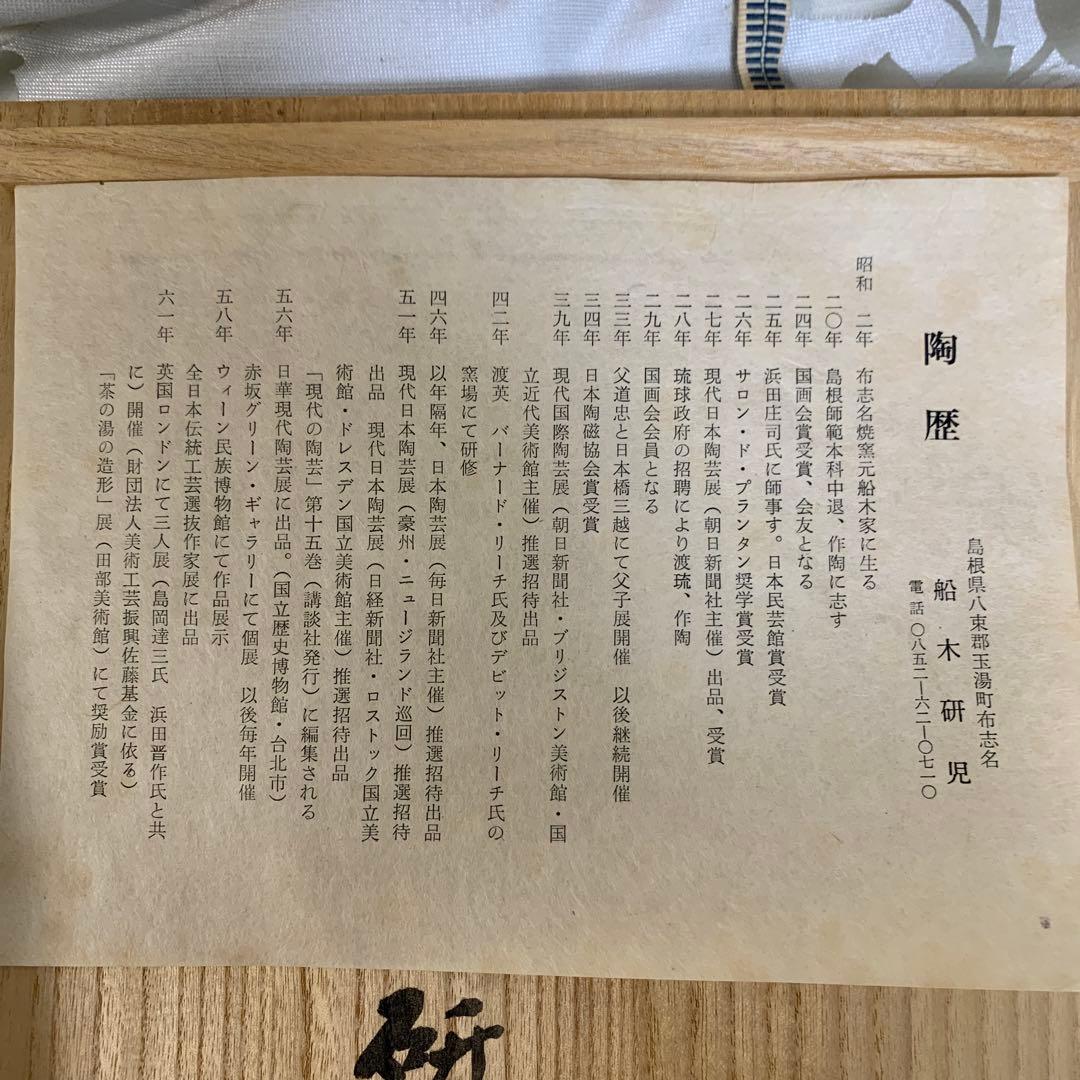 陶歴
島根県八束郡玉湯町布志名
船木研児
電話〇八五二―六二―〇七一〇
昭和 二年 布志名焼窯元船木家に生る
二〇年 島根師範本科中退、作陶に志す
二四年 国画会賞受賞、会友となる
二五年 浜田庄司氏に師事す。日本民芸館賞受賞
二六年 サロン・ド・プランタン奨学賞受賞
二七年 現代日本陶芸展（朝日新聞社主催）出品、受賞
二八年 琉球政府の招聘により渡琉、作陶
二九年 国画会会員となる
三三年 父道忠と日本橋三越にて父子展開催 以後継続開催
三四年 日本陶磁協会賞受賞
三九年 現代国際陶芸展（朝日新聞社・ブリジストン美術館・国
立近代美術館主催）推選招待出品
四二年 渡英 バーナード・リーチ氏及びデビット・リーチ氏の
窯場にて研修
四六年 以年隔年、日本陶芸展（毎日新聞社主催）推選招待出品
五一年 現代日本陶芸展（豪州・ニュージランド巡回）推選招待
出品 現代日本陶芸展（日経新聞社・ロストック国立美
術館・ドレスデン国立美術館主催）推選招待出品
「現代の陶芸」第十五巻（講談社発行）に編集される
五六年 日華現代陶芸展に出品。（国立歴史博物館・台北市）
赤坂グリーン・ギャラリーにて個展 以後毎年開催
五八年 ウィーン民族博物館にて作品展示
全日本伝統工芸選抜作家展に出品
六一年 英国ロンドンにて三人展（島岡達三氏 浜田晋作氏と共
に）開催（財団法人美術工芸振興佐藤基金に依る）
「茶の湯の造形」展（田部美術館）にて奨励賞受賞
研